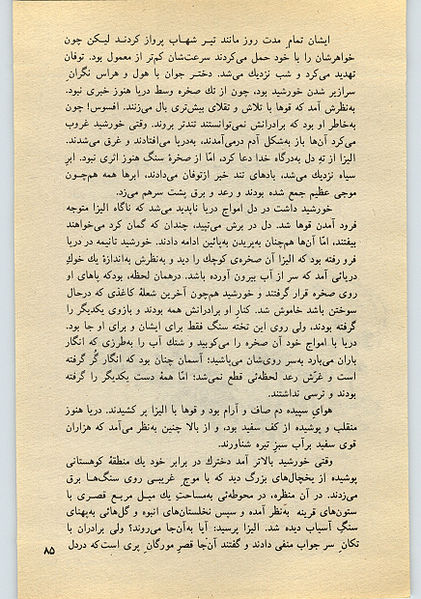 ایشان تمامِ مدت روز مانند تیـر شهـاب پرواز کردنـد لیـکن چون
خواهرشان را با خود حمل می‌کردند سرعت‌شان کم‌تر از معمول بود. توفان
تهدید می‌کرد و شب نزدیك می‌شد. دختـر جوان با هول و هراس نگرانِ
سرازیر شدنِ خورشید بود، چون از تك صخره وسط دریا هنوز خبری نبود.
به‌نظرش آمد که قوها با تلاش و تقلای بیش‌تری بال می‌زنند. افسوس! چون
به‌خاطر او بود که برادرانش نمی‌توانستند تندتر بروند. وقتی خورشید غروب
می‌کرد آن‌ها باز به‌شکل آدم درمی‌آمدند، به‌دریا می‌افتادند و غرق می‌شدند.
الیزا از تهِ دل به‌درگاه خدا دعا کرد، امّا از صخرهٔ سنگ هنوز اثری نبود. ابر
سیاه نزدیك می‌شد، بادهای تند خبر ازتوفان می‌دادند، ابرها همه هم‌چـون
موجی عظیم جمع شده بودند و رعد و برق پشت سرهم می‌زد.
خورشید داشت در دل امواج دریا ناپدید می‌شد که ناگاه الیزا متوجه
فرود آمدن قوها شد. دل در برش می‌تپید، چندان که گمان کرد می‌خواهند
بیفتند، امّا آن‌ها هم‌چنان به‌پریدن به‌پائین ادامه دادند. خورشید تانیمه در دریا
فرو رفته بود که الیزا آن صخره‌ی کوچك را دید و به‌نظرش به‌اندازهٔ یك خوك
دریائی آمد که سر از آب بیرون آورده باشد. درهمان لحظه، بودکه پاهای او
روی صخره قرار گرفتند و خورشید هم‌چون آخرین شعلهٔ کاغذی که درحال
سوختن باشد خاموش شد. کنارِ او برادرانش همه بودند و بازوی یکدیگر را
گرفته بودند، ولی روی این تخته سنگ فقط برای ایشان و برای او جا بود.
دریا با امواج خود آن صخره را می‌کوبید و شتك آب را به‌طرزی که انگار
باران می‌بارد به‌سر روی‌شان می‌پاشید؛ آسمان چنان بود که انگار گُر گرفته
است و غرّش رعد لحظه‌ئی قطع نمی‌شد؛ امّا همهٔ دست یکدیگر را گرفته
بودند و ترسی نداشتند.
هوایِ سپیده دم صاف و آرام بود و قوها با الیزا پر کشیدند. دریا هنوز
منقلب و پوشیده از کف سفید بود، و از بالا چنین به‌نظر می‌آمد که هزاران
قوی سفید برآب سبز تیره شناورند.
وقتی خورشید بالاتر آمد دخترك در برابر خود یك منطقهٔ کوهستانی
پوشیده از یخچال‌های بزرگ دید که با موج غریبی روی سنگ‌ها برق
می‌زدند. در آن منظره، در محوطه‌ئی به‌مساحتِ یك میـل مربـع قصری با
ستون‌های قرینه به‌نظر آمده و سپس نخلستان‌های انبوه و گل‌هائی به‌پهنای
سنگِ آسیاب دیده شد. الیزا پرسید: آیا به‌آن‌جا می‌روند؟ ولی برادران با
تکانِ سر جواب منفی دادند و گفتند آن‌جا قصرِ مورگانِ پری است که دردل
۸۵